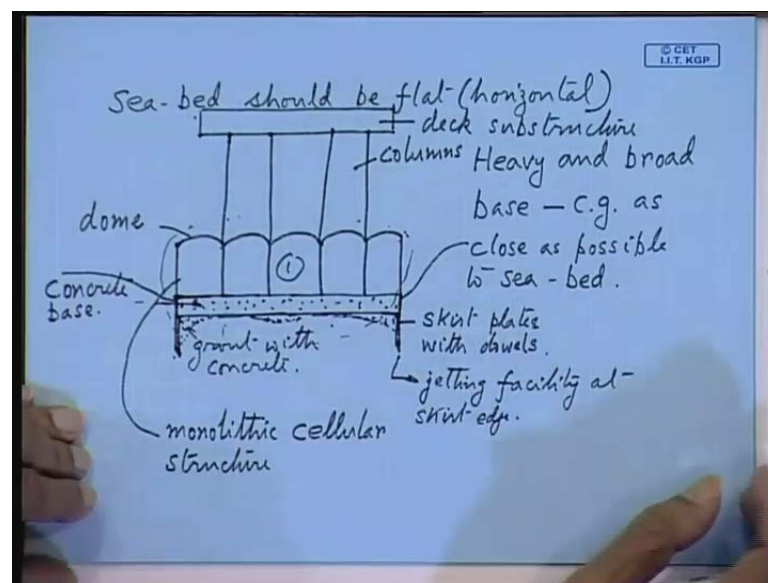 © CET
I.I.T. KGP
Sea-bed should be flat (horizontal)
deck substructure
columns
Heavy and broad
base - c.g. as
close as possible
to sea-bed.
dome
①
concrete
base.
skirt plates
with dowels.
grout with
concrete.
jetting facility at
skirt edge.
monolithic cellular
structure